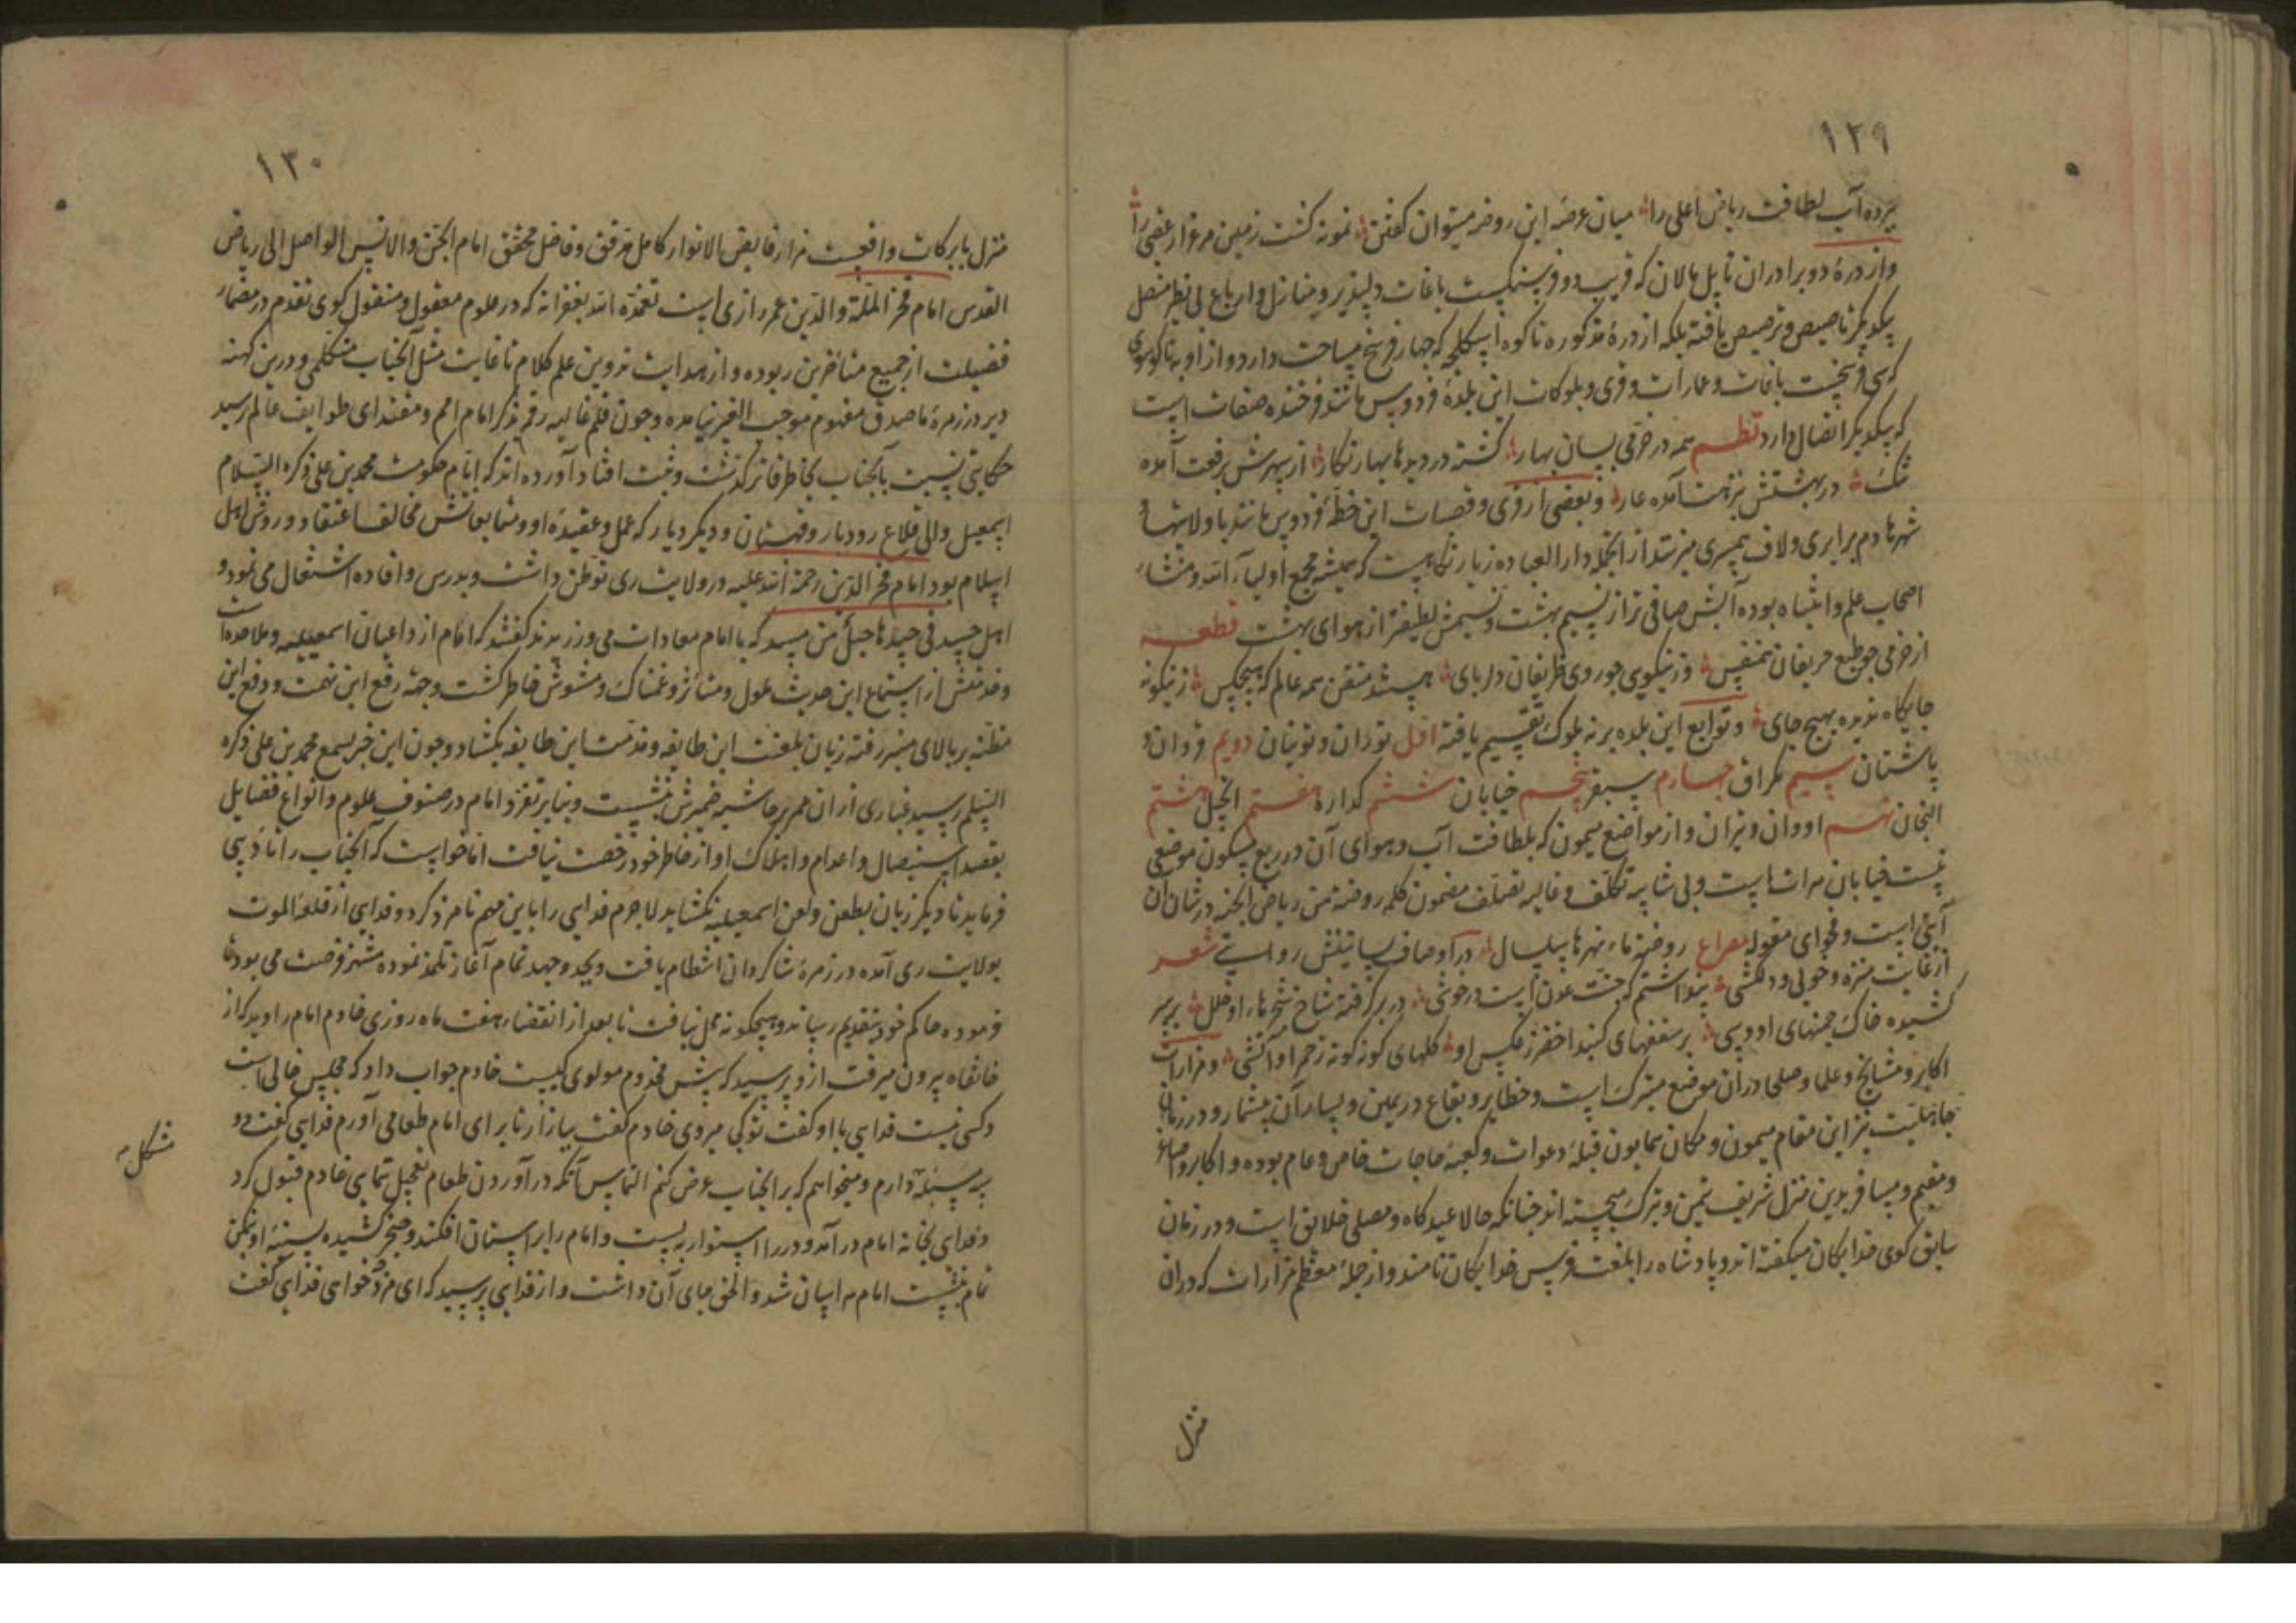 ١٢٩
برده آب لطافت ریاض اعلی را میان عرصه این روضه میتوان گفتن نمونه گشت زمین مرغزار عقبی را
واز درهٔ دو برادران تا پل مالان که قریب دو فرسنگست باغات دلپذیر و منازل و ارباع بی نظیر متصل
یکدیگر تاصیص و ترصیص یافته بلکه از درهٔ مذکوره تا کوه اسکلجه که چهار فرسخ مساحت دارد و از اوبه تا کوسوی
که سی فرسخست باغات و عمارات و قری و بلوکات این بلدهٔ فردوس مانند فرخنده صفات است
که بیکدیگر اتصال دارد نظم همه در خرمی بسان بهار گشته در دیدها بهار نگار از سپهرش برفعت آمده
ننگ در بهشتش بنزهت آمده عار و بعضی از قری و قصبات این خطهٔ فردوس مانند با ولایتها و
شهرها دم برابری و لاف همسری میزنند از انجمله دار العباده زیارتگاهست که همیشه مجمع اولیاء الله و منشاء
اصحاب علم و انتباه بوده آبش صافی تر از تسنیم بهشت و نسیمش لطیفتر از هوای بهشت قطعه
از خرمی چو طبع حریفان همنفس وز نیکویی چو روی ظریفان دلربای هستند متفق همه عالم که هیچکس زینگونه
جایگاه ندیده بهیچ جای و توابع این بلده بر نه بلوک تقسیم یافته اول توران و تونیان دویم فروان و
باشتان سیم کمراق چهارم سبقر پنجم خیابان ششم گذاره هفتم انجیل هشتم
النجان نهم اودوان و تیزان و از مواضع میمون که بلطافت آب و هوای آن در ربع مسکون موضعی
نیست خیابان هرات است و بی شایبه تکلف و غایله تصلف مضمون کلمه روضة من ریاض الجنه در شان آن
آیتی است و فحوای مقوله مصراع روضة ماء نهرها سلسال در اوصاف بساتینش روایتی شعر
از غایت منزه و خوبی و دلکشی پنداشتم که جنت عدن است در خوشی در بر گرفته شاخ شجرهاء او حلل بر سر
کشیده خاک چمنهای او وشی بر سقفهای گنبد اخضر ز عکس او گلهای گونه گونه ز حمرا و آتشی و مزارات
اکابر و مشایخ و علما و صلحا در آن موضع متبرک است و حظایر و بقاع در یمین و یسار آن بیشمار و در زمان
جاهلیت نیز این مقام میمون و مکان همایون قبلهٔ دعوات و کعبهٔ حاجات خاص و عام بوده و اکابر و اصاغر
و مقیم و مسافر بدین منزل شریف تیمن و تبرک میجسته اند چنانکه حالا عیدگاه و مصلی خلایق است و در زمان
سابق کوی خدایگان میگفته اند و پادشاه را بلغت فرس خدایگان نامند و از جملهٔ معظم مزارات که در آن
منزل
١٣٠
منزل با برکات واقعست مزار فایض الانوار کامل مدقق و فاضل محقق امام الجن والانس الواصل الی ریاض
القدس امام فخر الملة والدین عمر رازی است تغمده الله بغفرانه که در علوم معقول و منقول گوی تقدم در مضمار
فضیلت از جمیع متأخرین ربوده و از هدایت تدوین علم کلام تا غایت مثل آنجناب متکلمی و درین کهنه
دیر در زمرهٔ ماصدق مفهوم موجب الفخر نیامده و چون قلم غالیه رقم بذکر امام امم و مقتدای طوایف عالم رسید
حکایتی نسبت بآنجناب بخاطر فاتر گذشت و ثبت افتاد آورده اند که ایام حکومت محمد بن علی ذکره السلام
اسمعیل والی قلاع رودبار و قهستان و دیگر دیار که عمل و عقیدهٔ او و متابعانش مخالف اعتقاد و روش اهل
اسلام بود امام فخر الدین رحمة الله علیه در ولایت ری توطن داشت و بدرس و افاده اشتغال می نمود و
اهل حسد فی جیدها حبل من مسد که با امام معادات می ورزیدند گفتند که امام از داعیان اسمعیلیه و ملاحده است
وخدمتش از استماع این حدیث ملول و متأثر و غمناک و مشوش خاطر گشت و جهة رفع این تهمت و دفع این
مظنه بر بالای منبر رفته زبان بلعنت این طایفه و مذمت این طایفه بگشاد و چون این خبر بسمع محمد بن علی ذکره
السلام رسید غباری از ان ممر بر حاشیه ضمیرش نشست و بنابر تفرد امام در صنوف علوم و انواع فضایل
بقصد استیصال و اعدام و اهلاک او از خاطر خود رخصت نیافت اما خواست که آنجناب را تأدیبی
فرماید تا دیگر زبان بطعن و لعن اسمعیلیه نگشاید لاجرم فدایی را باین مهم نامزد کرد و فدایی از قلعهٔ الموت
بولایت ری آمده در زمرهٔ شاگردان انتظام یافت و بجد و جهد تمام آغاز تلمذ نموده منتهز فرصت می بود تا
فرموده حاکم خود بتقدیم رساند و هیچگونه محل نیافت تا بعد از انقضاء هفت ماه روزی خادم امام را دید که از
خانقاه بیرون میرفت از و پرسید که پیش مخدوم مولوی کیست خادم جواب داد که مجلس خالی است
و کسی نیست فدایی با او گفت تو کی میروی خادم گفت ببازار تا برای امام طعامی آورم فدایی گفت دو
سه مسئله دارم و میخواهم که بر آنجناب عرض کنم التماس آنکه در آوردن طعام تعجیل ننمایی خادم قبول کرد
و فدایی بخانه امام در آمد و در را استوار ببست و امام را بر استان افکند و خنجر کشیده بسینهٔ او بتمکن
تمام نشست امام هراسان شد و الحق جای آن داشت و از فدایی پرسید که ای مرد چه خواهی فدایی گفت
مشکل